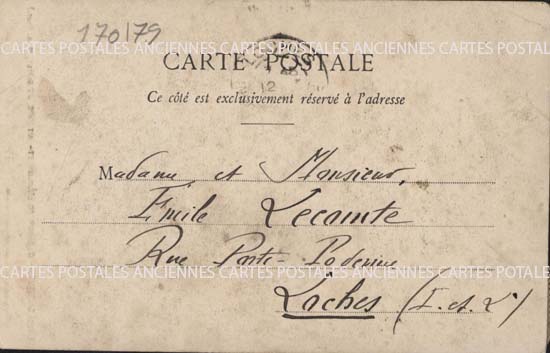 170179
CARTES POSTALES ANCIENNES CARTES POSTALES ANCIENNES CARTES POSTALES
CARTE POSTALE
12
Ce côté est exclusivement réservé à l'adresse
Madame et Monsieur,
Emile Lecomte
Rue Porte-Poterie
CARTES POSTALES ANCIENNES CARTES POSTALES ANCIENNES CARTES POSTALES
Loches (I. et L.)